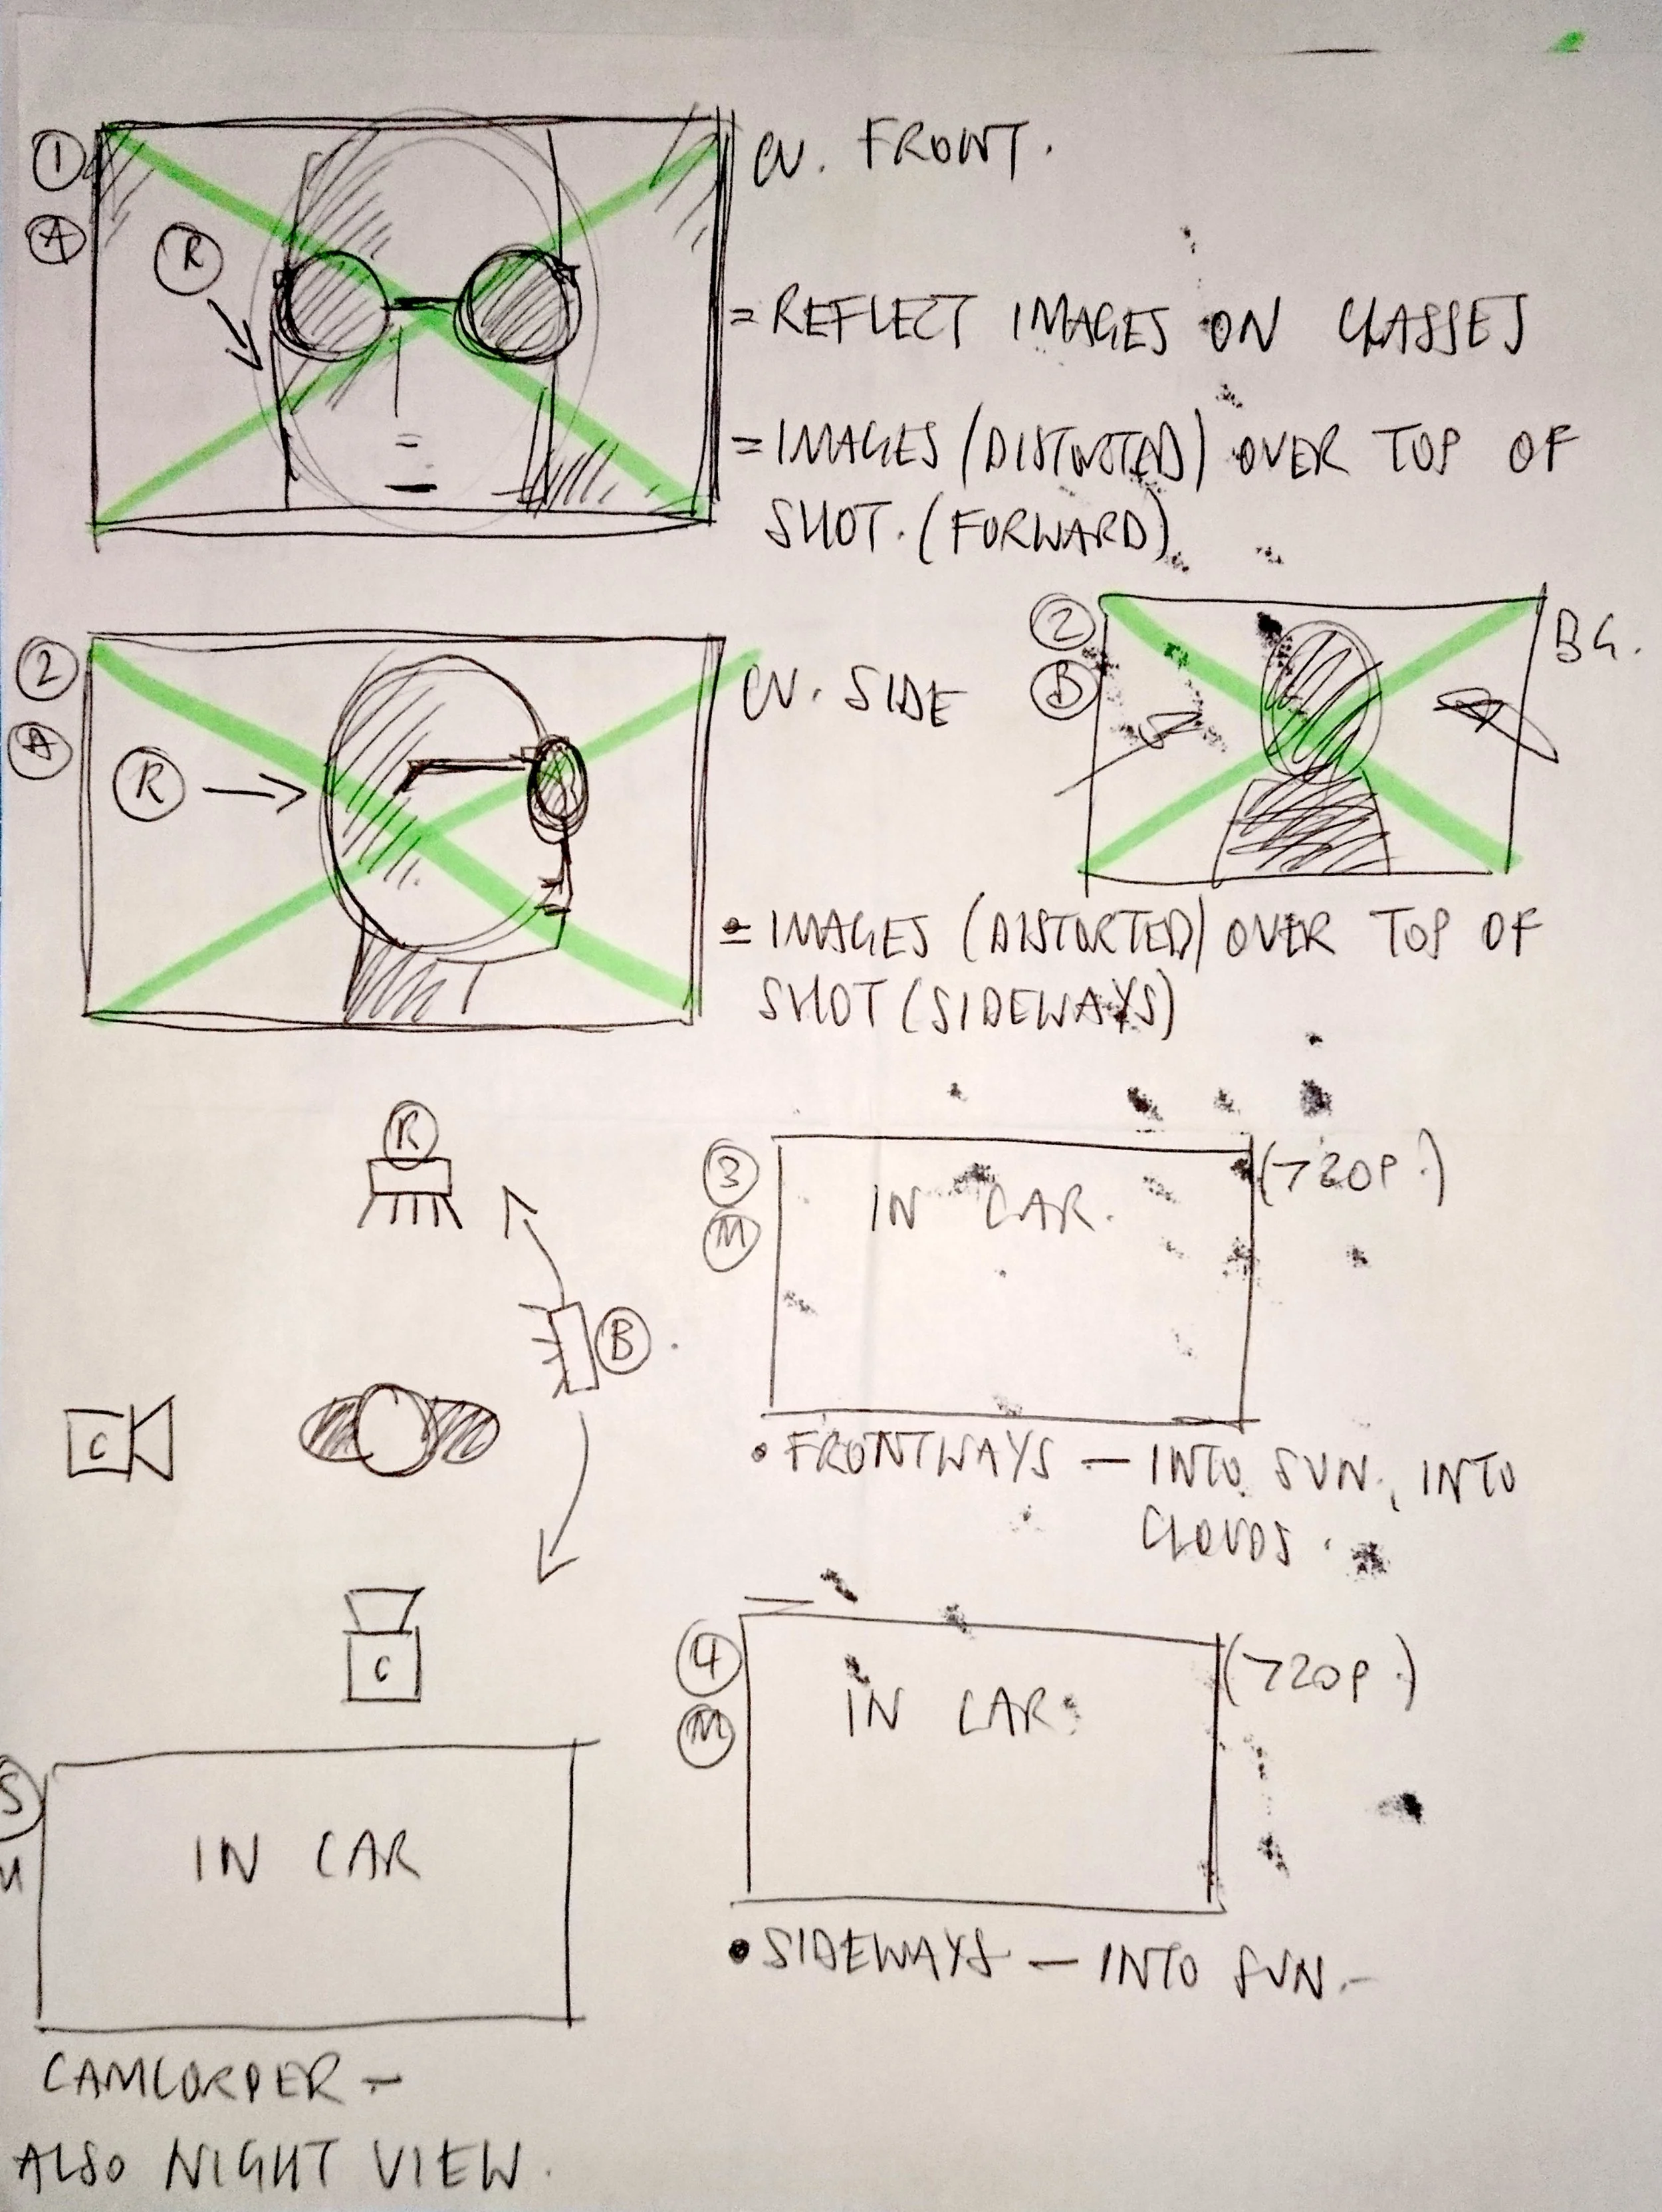 1
A
R
CU. FRONT.
= REFLECT IMAGES ON GLASSES
= IMAGES (DISTORTED) OVER TOP OF
SHOT. (FORWARD)
2
A
R
CU. SIDE
2
B
BG.
= IMAGES (DISTORTED) OVER TOP OF
SHOT (SIDEWAYS)
R
B
C
C
3
M
IN CAR.
(720P.)
• FRONTWAYS — INTO SUN, INTO
CLOUDS.
4
M
IN CAR.
(720P.)
• SIDEWAYS — INTO SUN.-
5
IN CAR
CAMCORDER -
ALSO NIGHT VIEW.